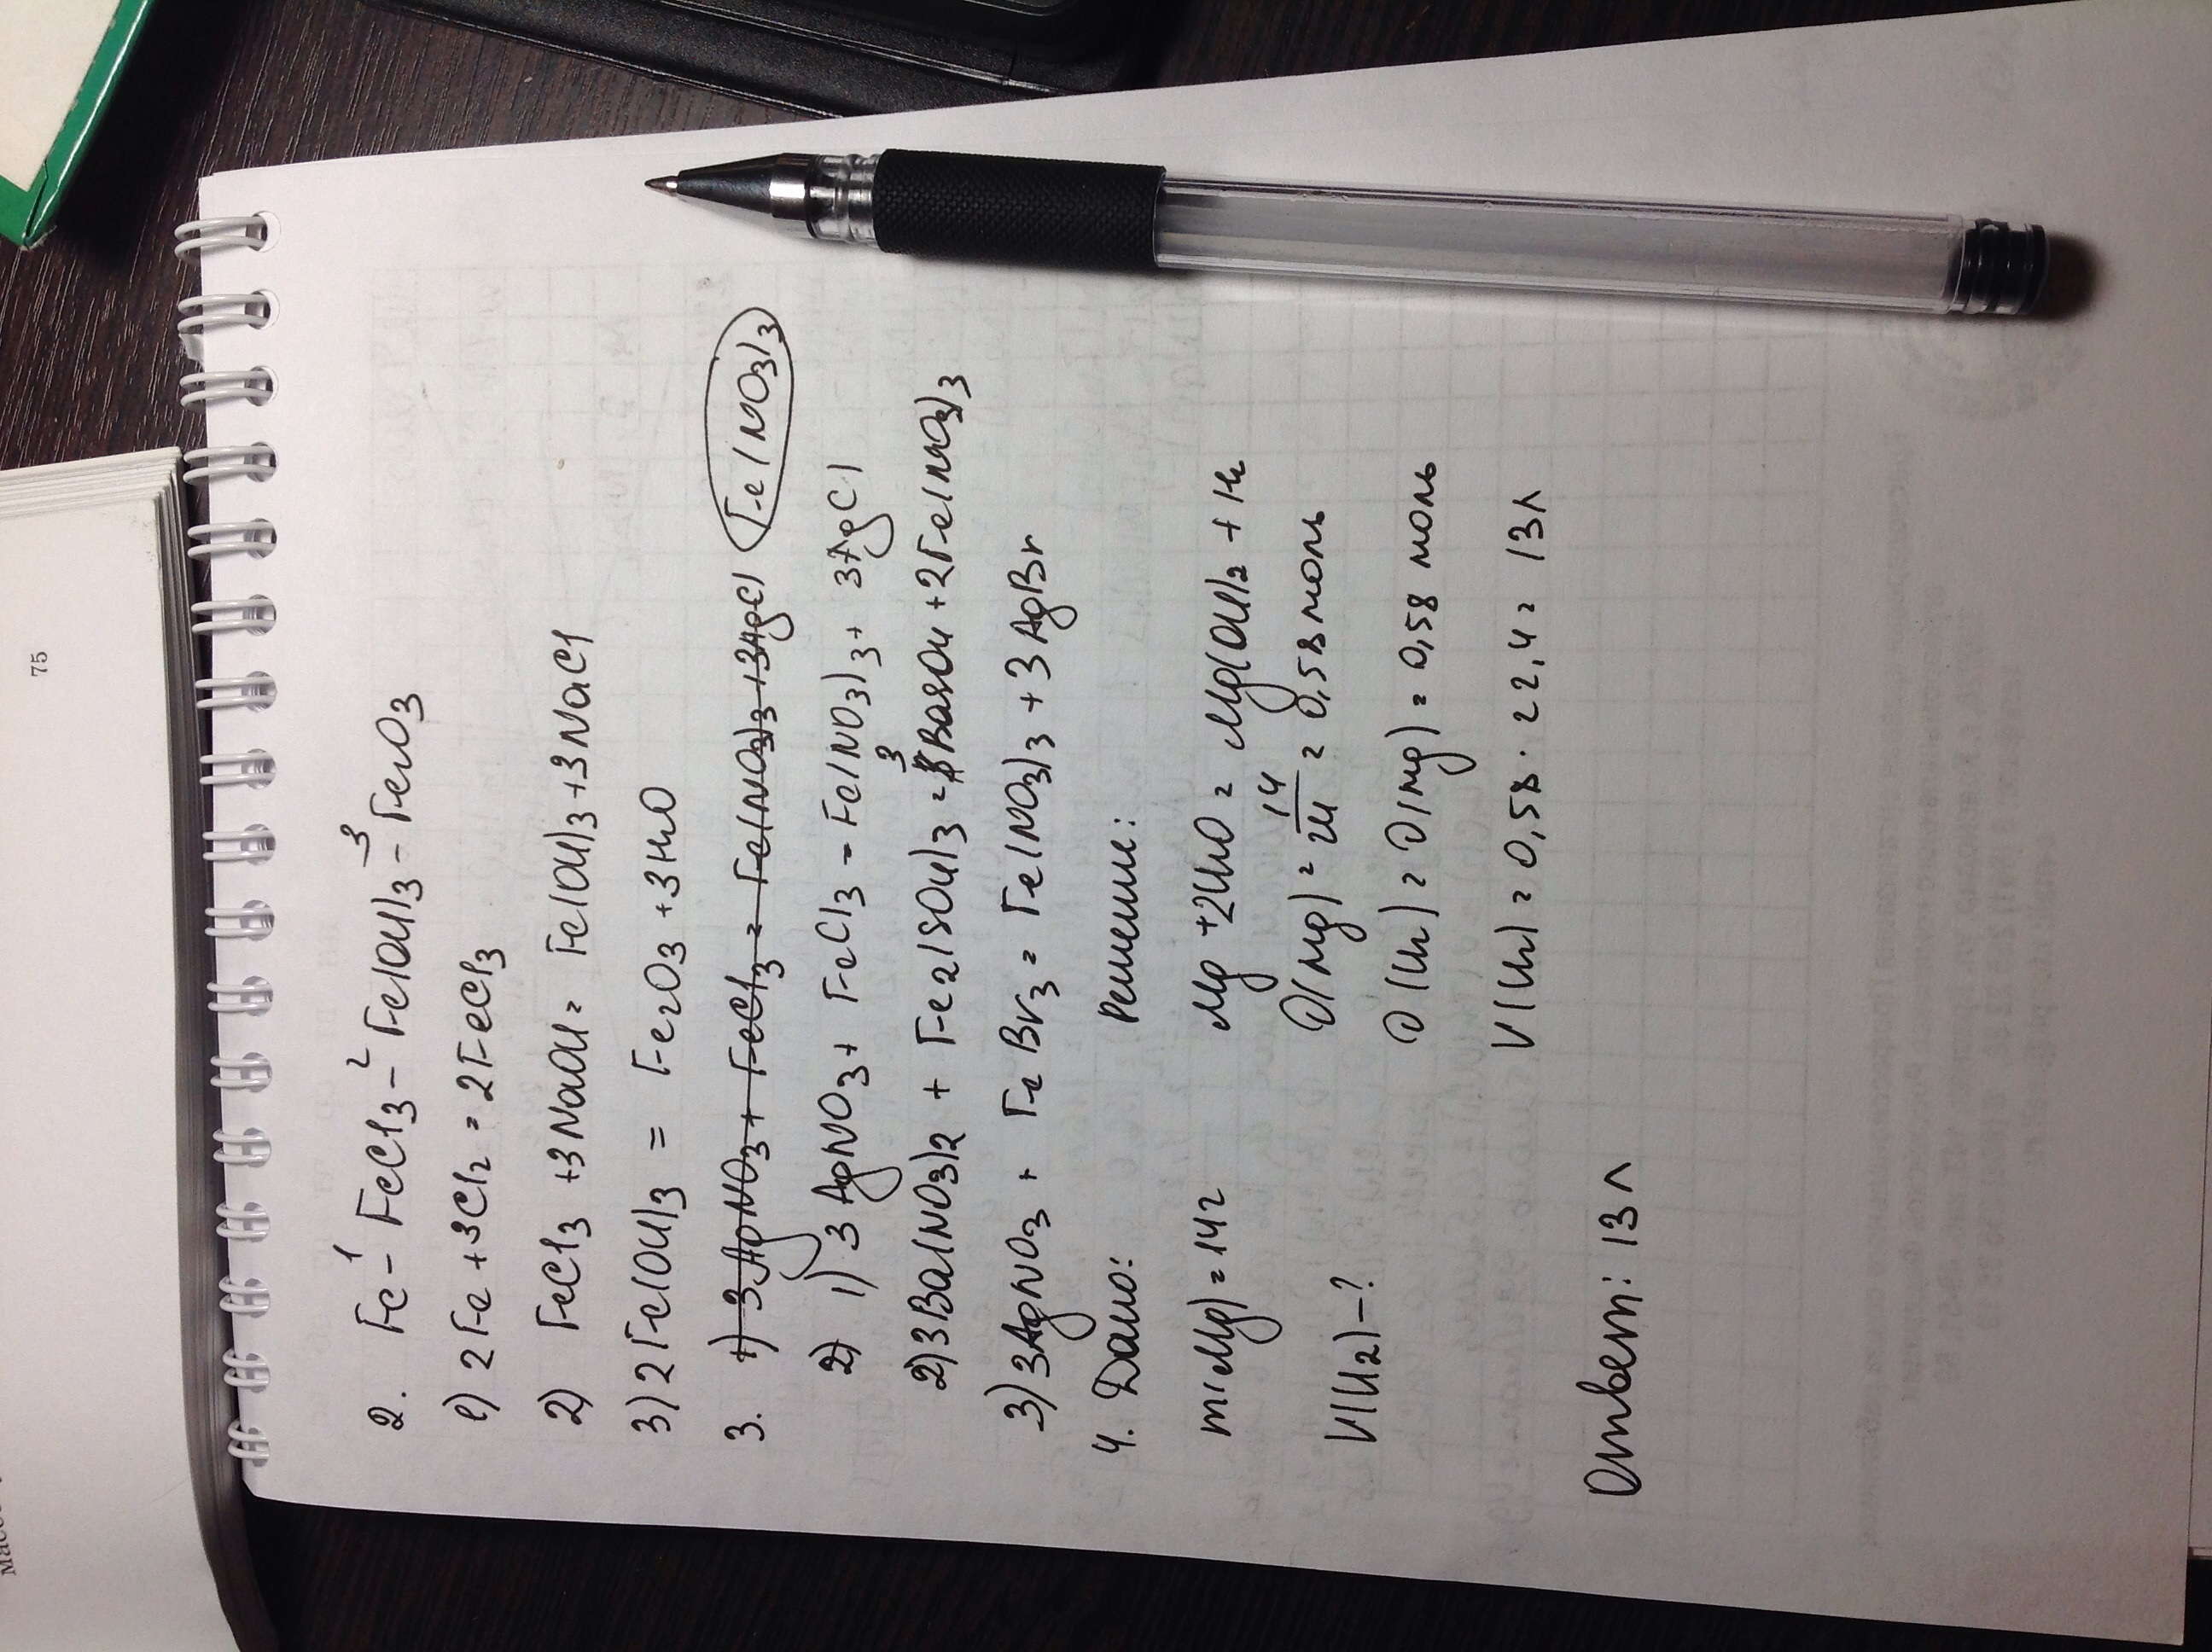 75
2. Fe –¹ FeCl3 –² Fe(OH)3 –³ Fe2O3
1) 2Fe + 3Cl2 = 2FeCl3
2) FeCl3 + 3NaOH = Fe(OH)3 + 3NaCl
3) 2Fe(OH)3 = Fe2O3 + 3H2O
3. 1) 3AgNO3 + FeCl3 = Fe(NO3)3 + 3AgCl Fe(NO3)3
1) 3AgNO3 + FeCl3 = Fe(NO3)3 + 3AgCl
2) 3Ba(NO3)2 + Fe2(SO4)3 = 3BaSO4 + 2Fe(NO3)3
3) 3AgNO3 + FeBr3 = Fe(NO3)3 + 3AgBr
4. Дано: Решение:
m(Mg) = 14г Mg + 2H2O = Mg(OH)2 + H2
V(H2) – ? υ(Mg) = 14/24 = 0,58 моль
υ(H2) = υ(Mg) = 0,58 моль
V(H2) = 0,58 · 22,4 = 13л
Ответ: 13л